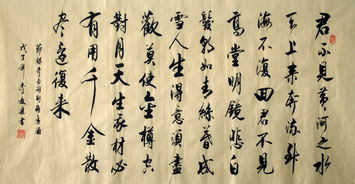 君不見黄河之水
天上来奔流到
海不復回君不見
高堂明鏡悲白
髮朝如青絲暮成
雪人生得意須盡
歡莫使金樽空
對月天生我材必
有用千金散
盡還復来
節録李白詩
戊子年 李 書